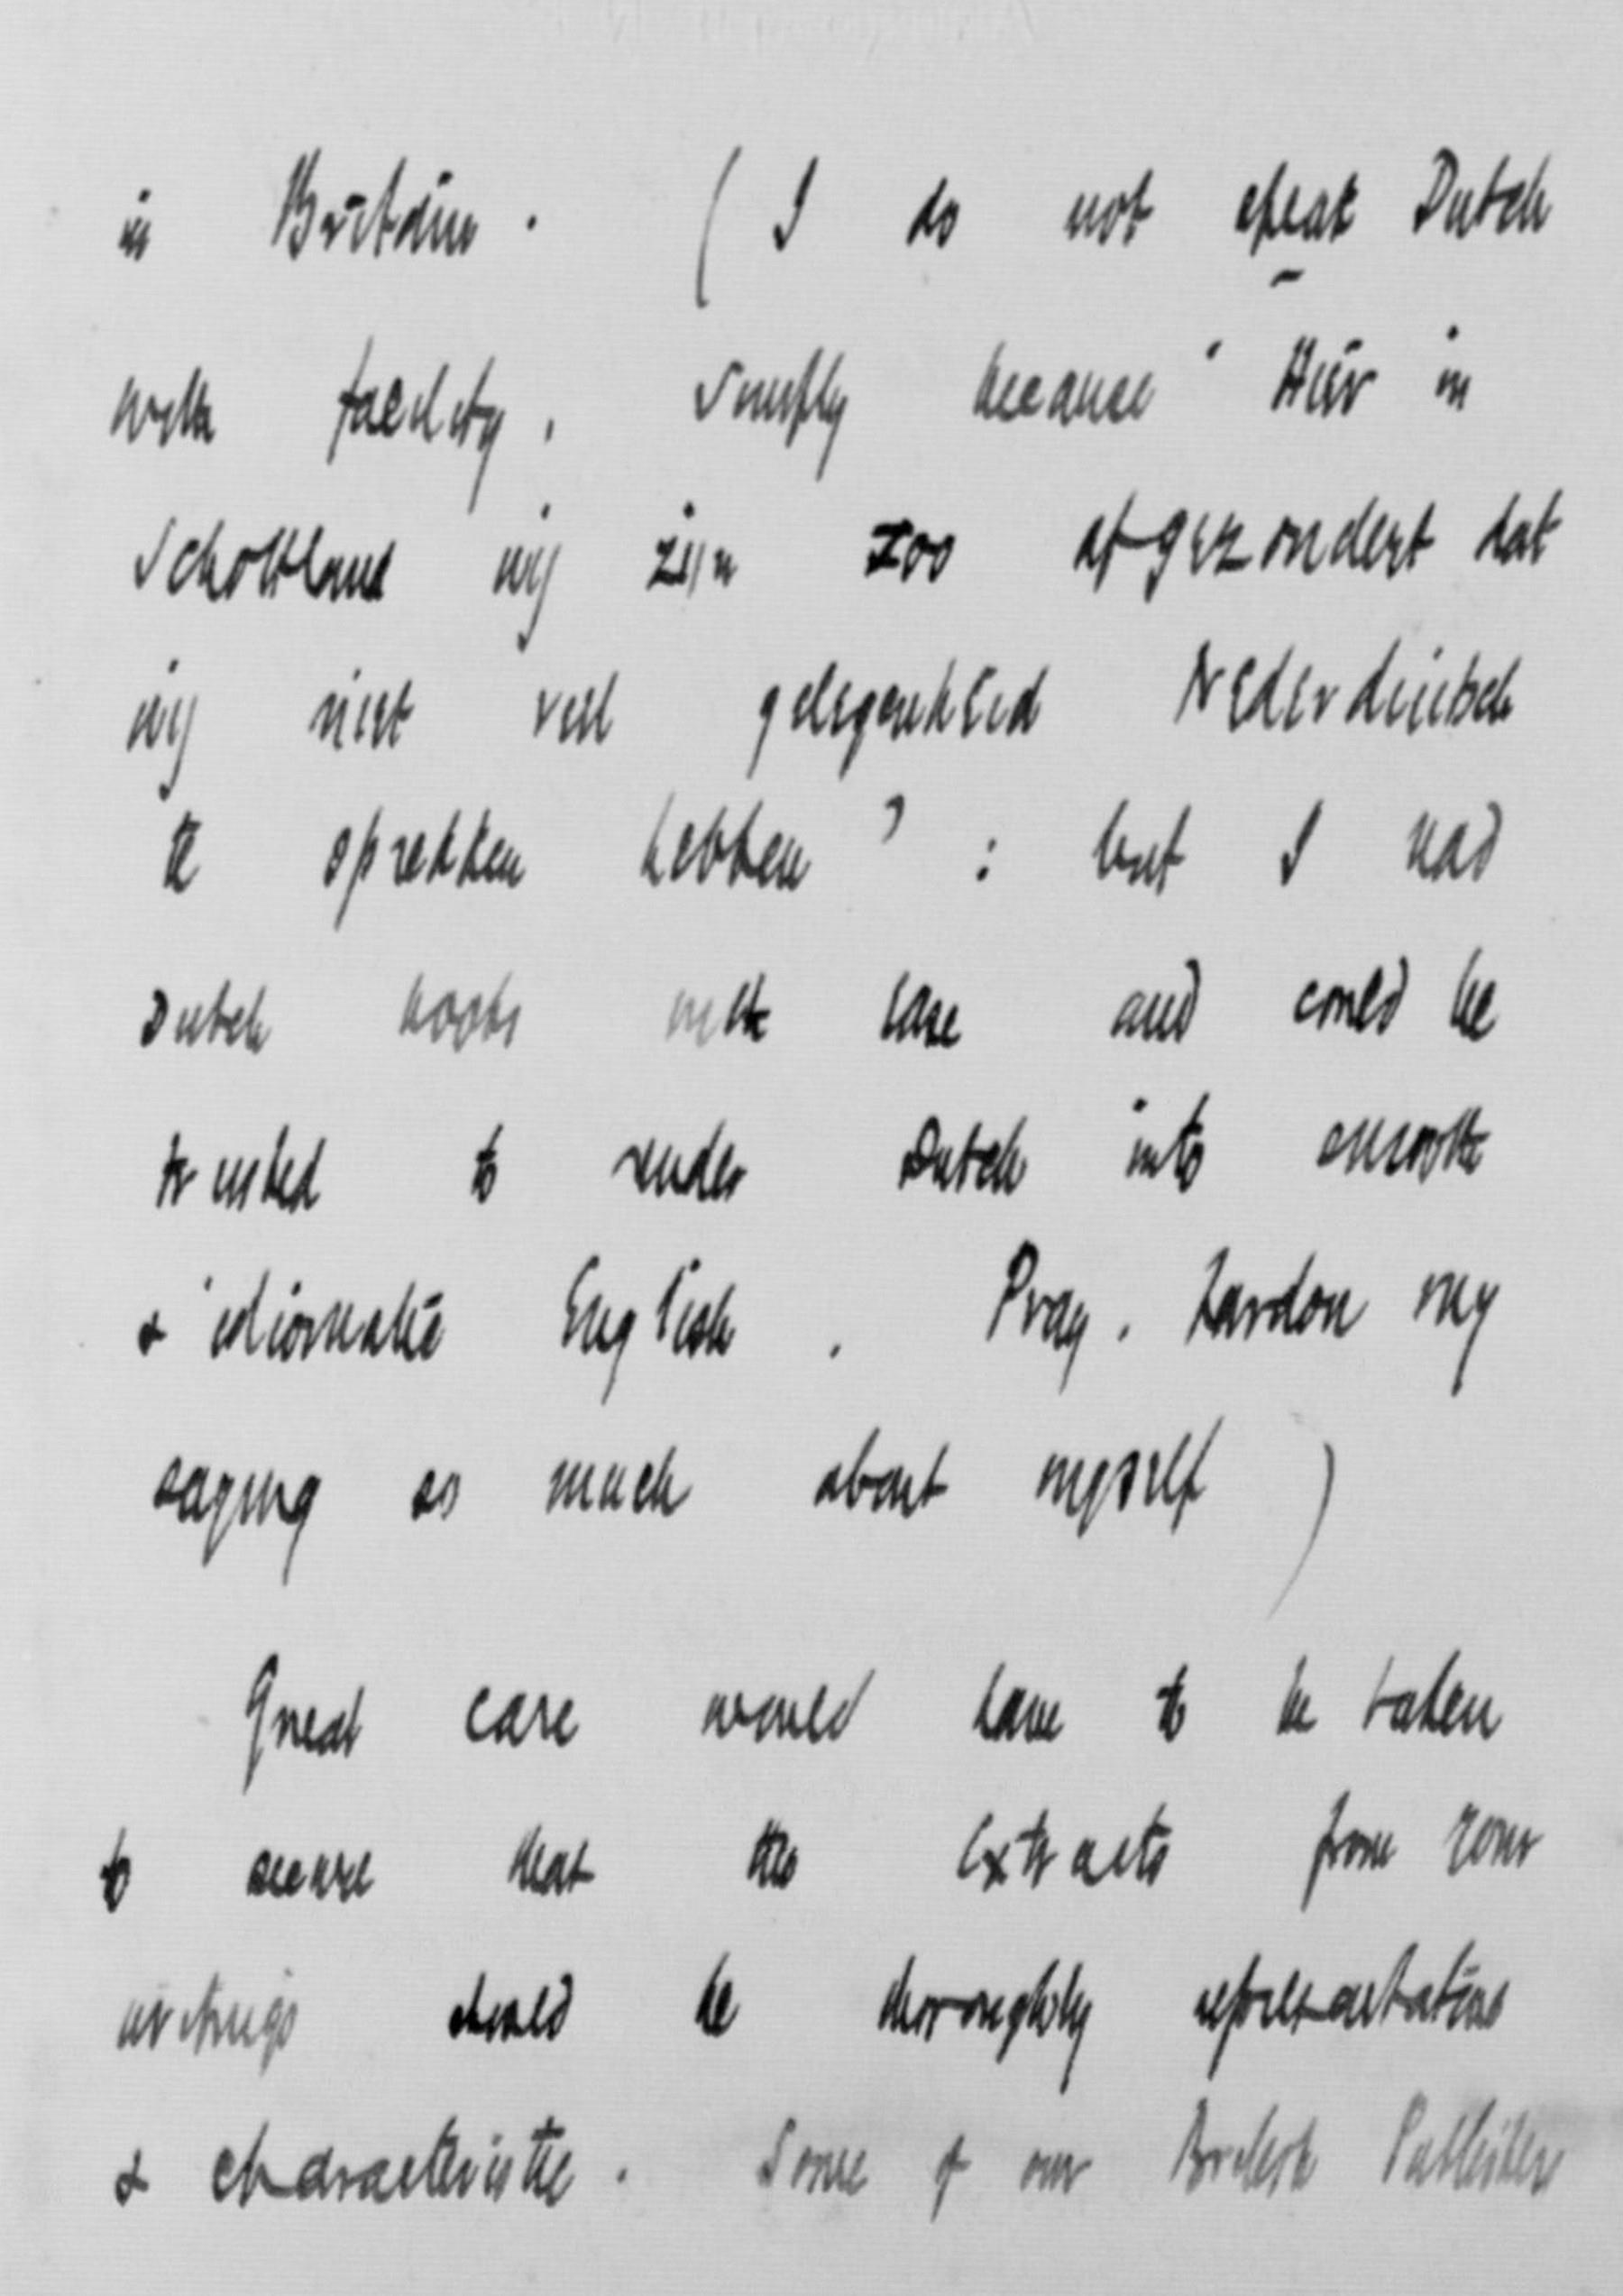 in Britain. (I do not speak Dutch
with facility, simply because 'Hier in
Schottland wij zijn zoo afgezondert dat
wij niet veel gelegenheid Nederduitsch
te sprekken hebben' : but I read
Dutch books with ease and could be
trusted to render Dutch into smooth
& idiomatic English. Pray, pardon my
saying so much about myself)
Great care would have to be taken
to secure that the extracts from your
writings should be thoroughly representative
& characteristic. Some of our British Publishers